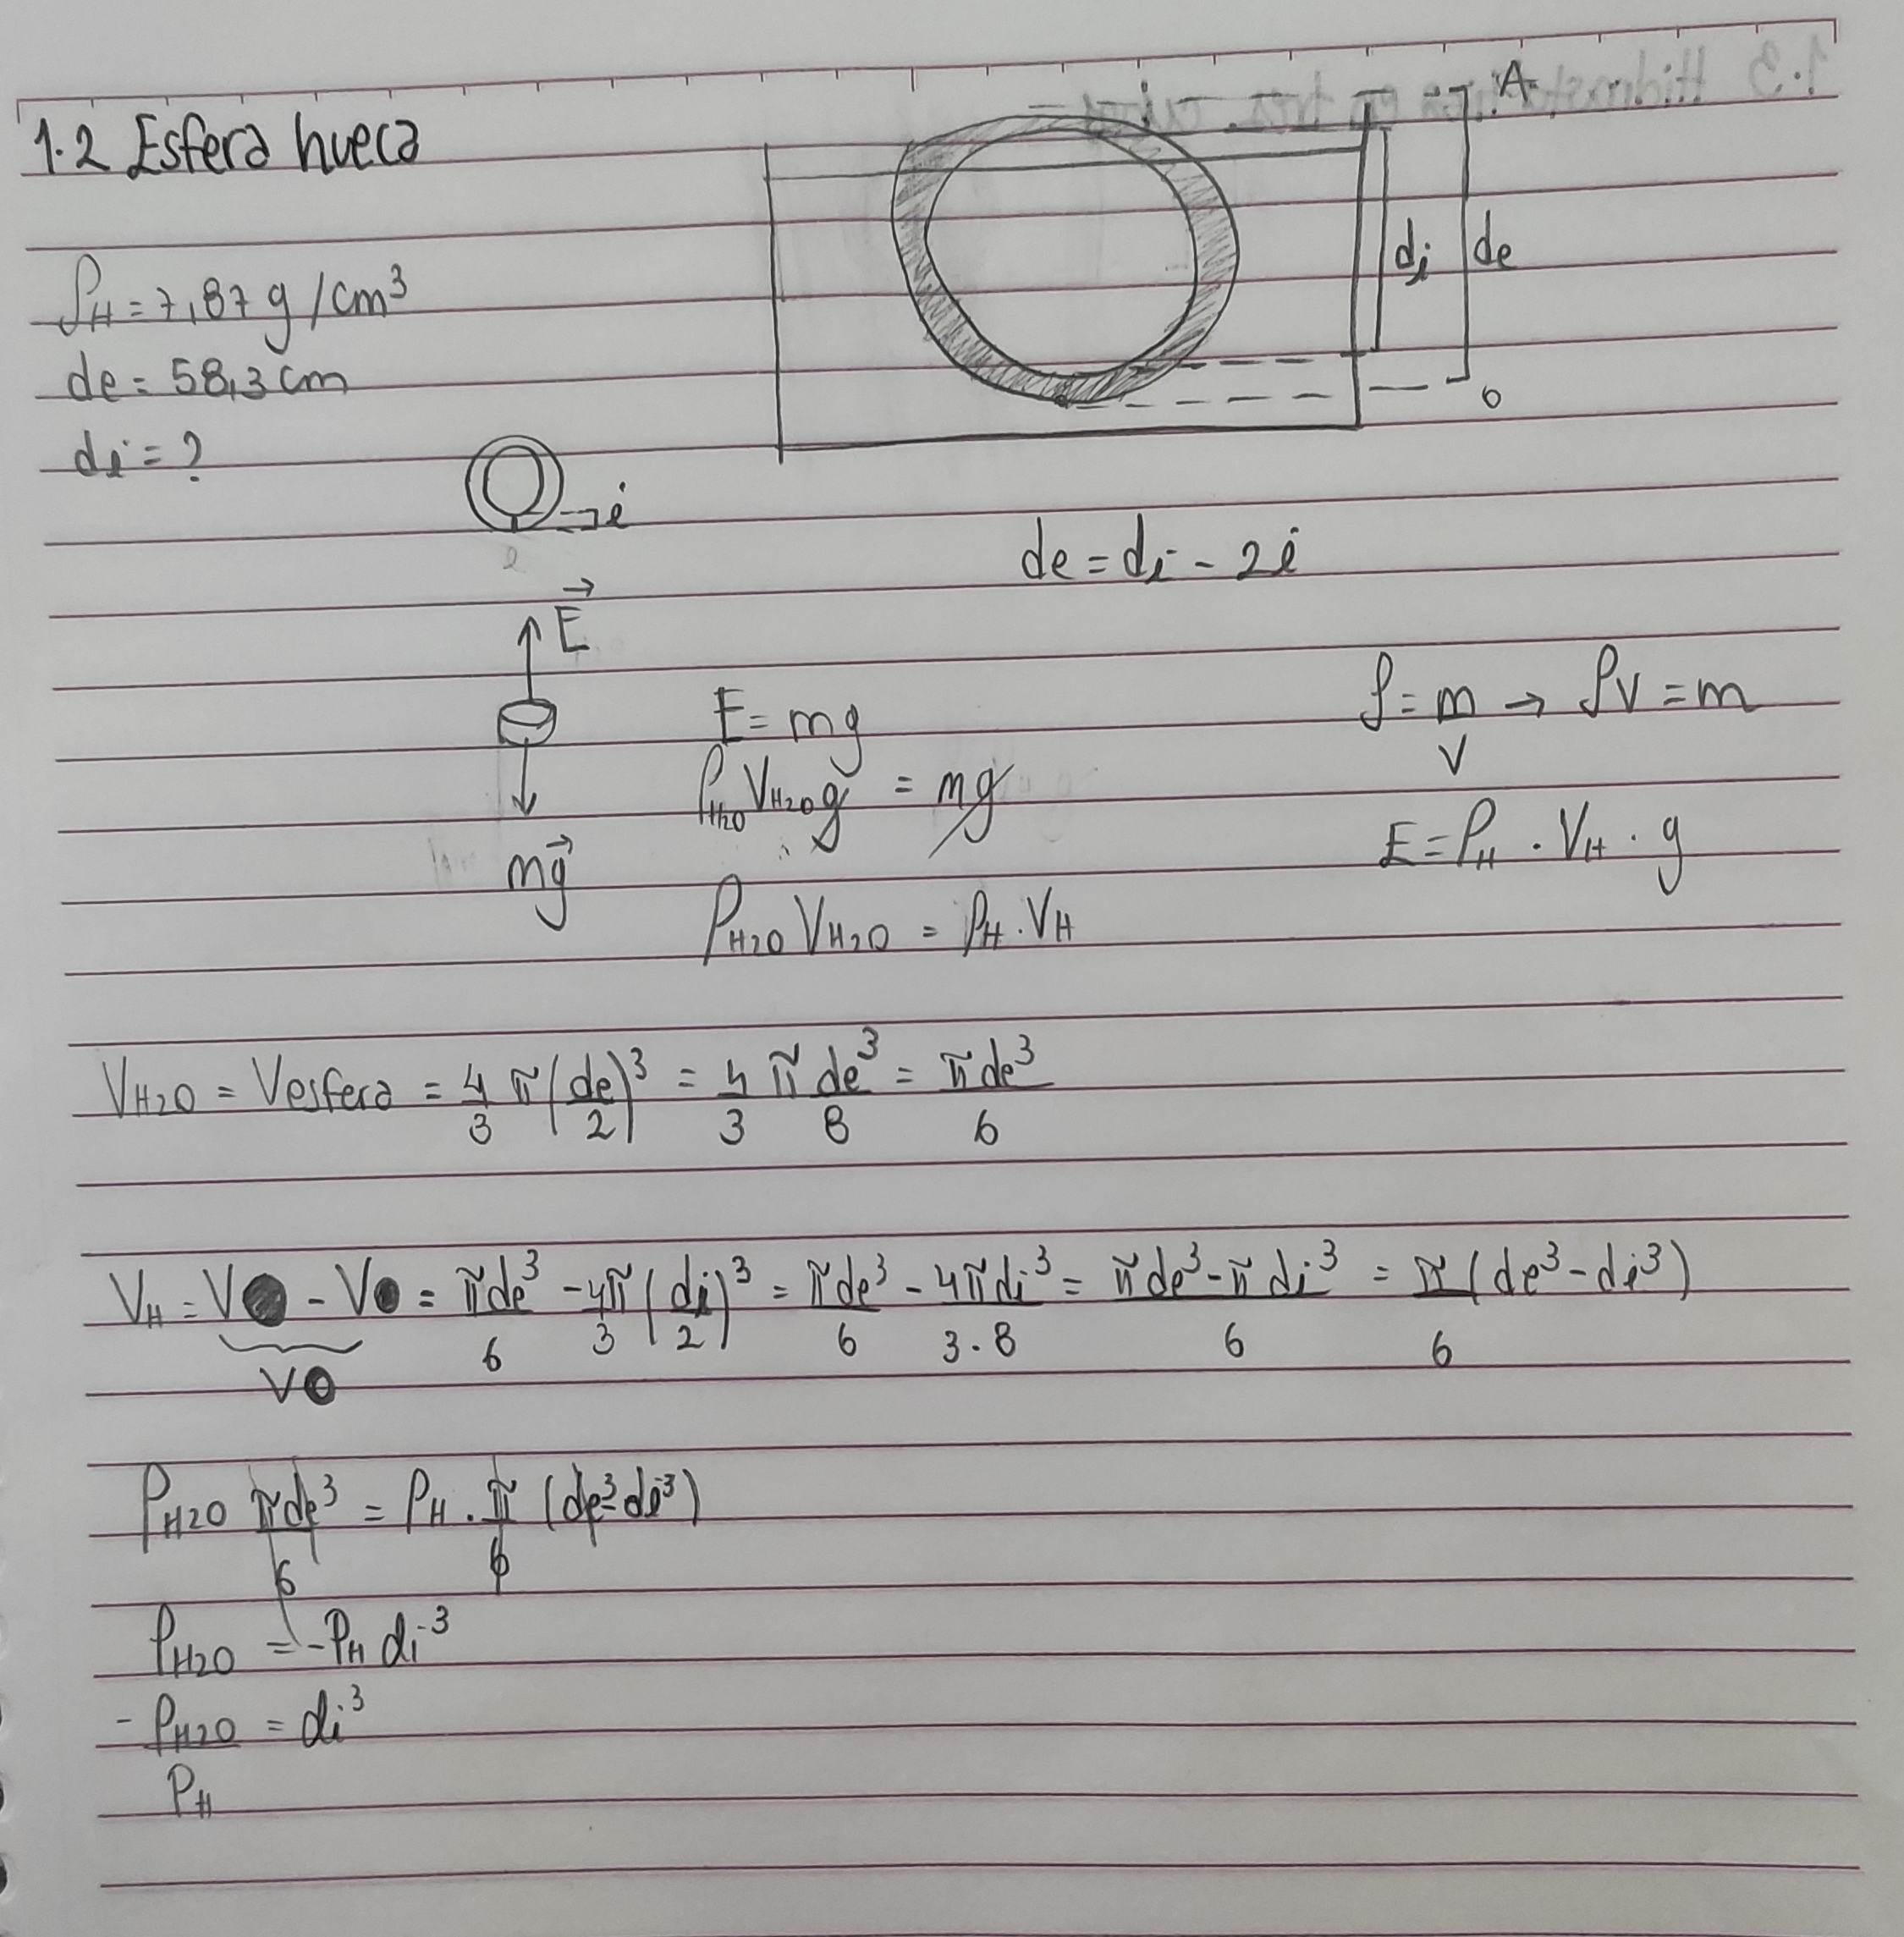 1.2 Esfera hueca
A
ρH = 7,87 g/cm³
de = 58,3 cm
di = ?
di de
o
i
de = di - 2i
E
E = mg
ρ = m/V → ρV = m
ρH2O VH2O g = mg
E = ρH · VH · g
mg
ρH2O VH2O = ρH · VH
VH2O = Vesfera = 4/3 π (de/2)³ = 4/3 π de³/8 = π de³/6
VH = V● - V● = π de³/6 - 4π/3 (di/2)³ = π de³/6 - 4π di³/3·8 = π de³ - π di³/6 = π/6 (de³ - di³)
VO
ρH2O π de³/6 = ρH · π/6 (de³ - di³)
ρH2O = -ρH di³
- ρH2O/ρH = di³